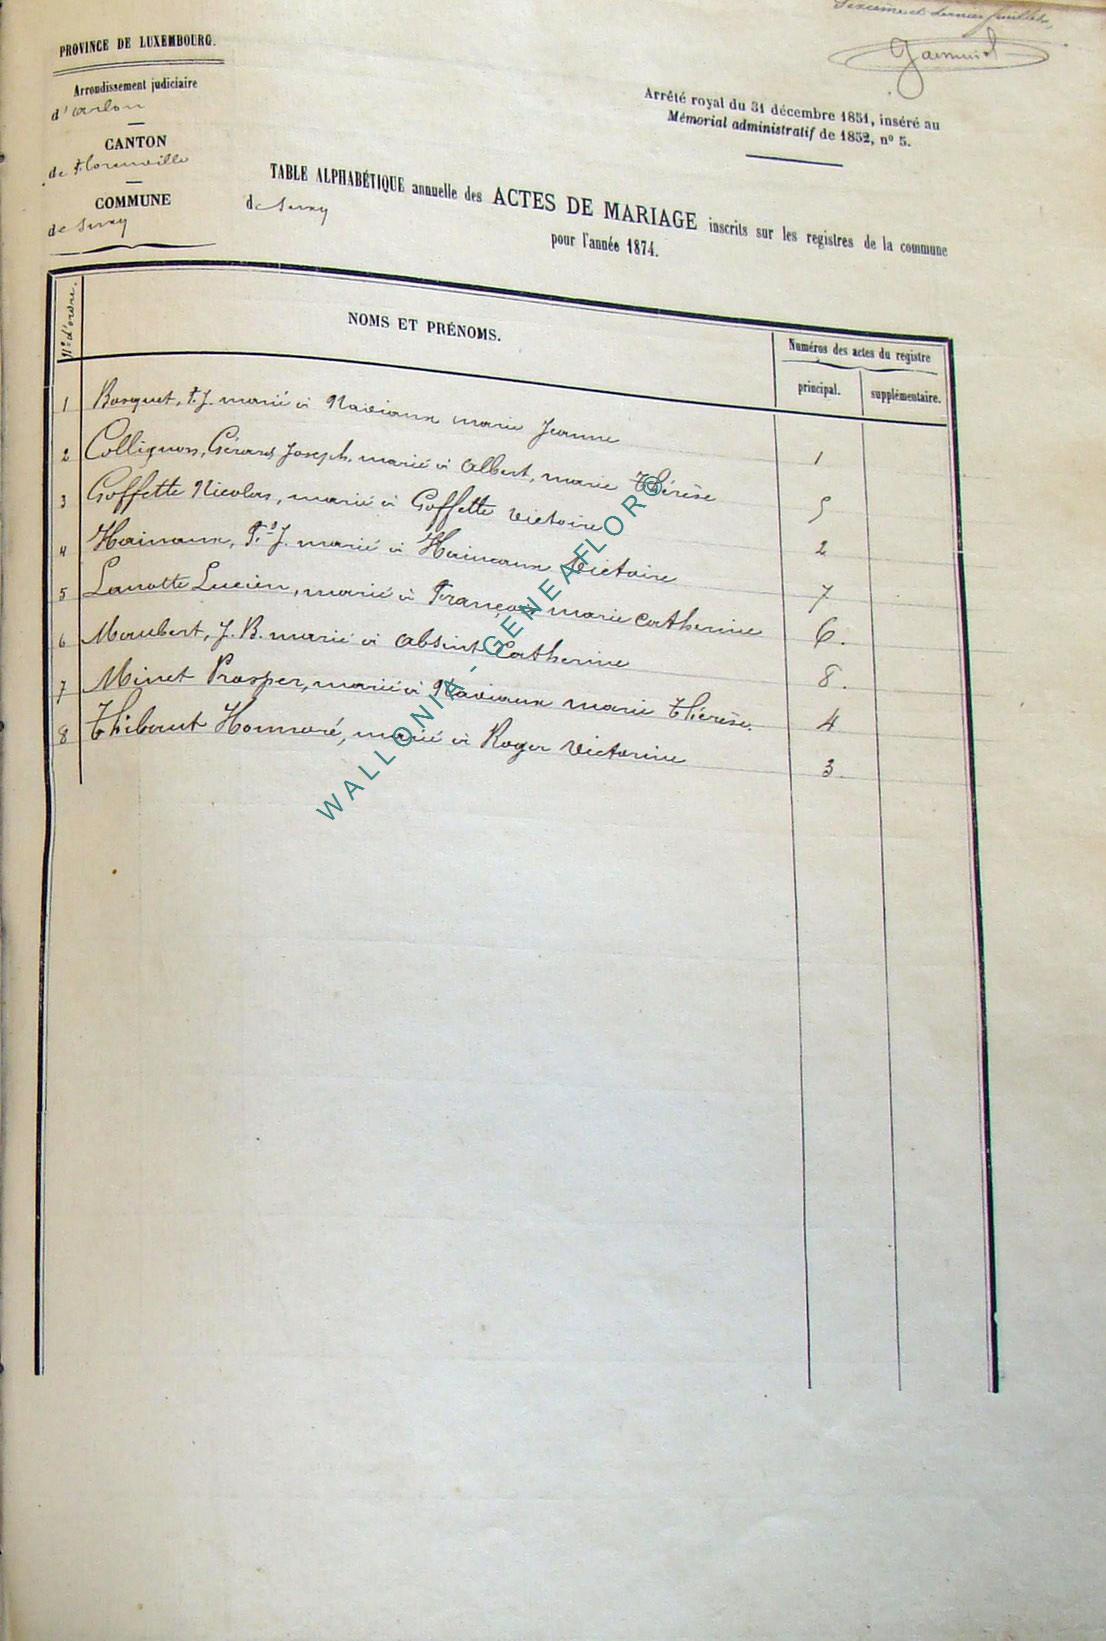 dernier feuillet,
PROVINCE DE LUXEMBOURG.
Arrondissement judiciaire
d'arlon
CANTON
de Florenville
COMMUNE
de
Arrêté royal du 31 décembre 1851, inséré au
Mémorial administratif de 1852, n° 5.
TABLE ALPHABÉTIQUE annuelle des ACTES DE MARIAGE inscrits sur les registres de la commune
de
pour l'année 1874.
Nos d'ordre.
NOMS ET PRÉNOMS.
Numéros des actes du registre
principal.
supplémentaire.
1 Bosquet, F. J. marié à Naviaux marie Jeanne 1
2 Collignon, Gérard Joseph, marié à Albert, marie Thérèse 5
3 Goffette Nicolas, marié à Goffette Victoire 2
4 Hainaux, Fs J. marié à Hainaux Victoire 7
5 Lanotte Lucien, marié à François marie Catherine 6.
6 Maubert, J. B. marié à Absint Catherine 8.
7 Minet Prosper, marié à Naviaux marie Thérèse. 4
8 Thibaut Honnoré, marié à Roger Victorine 3.
WALLONIA - GENEAFLOR©